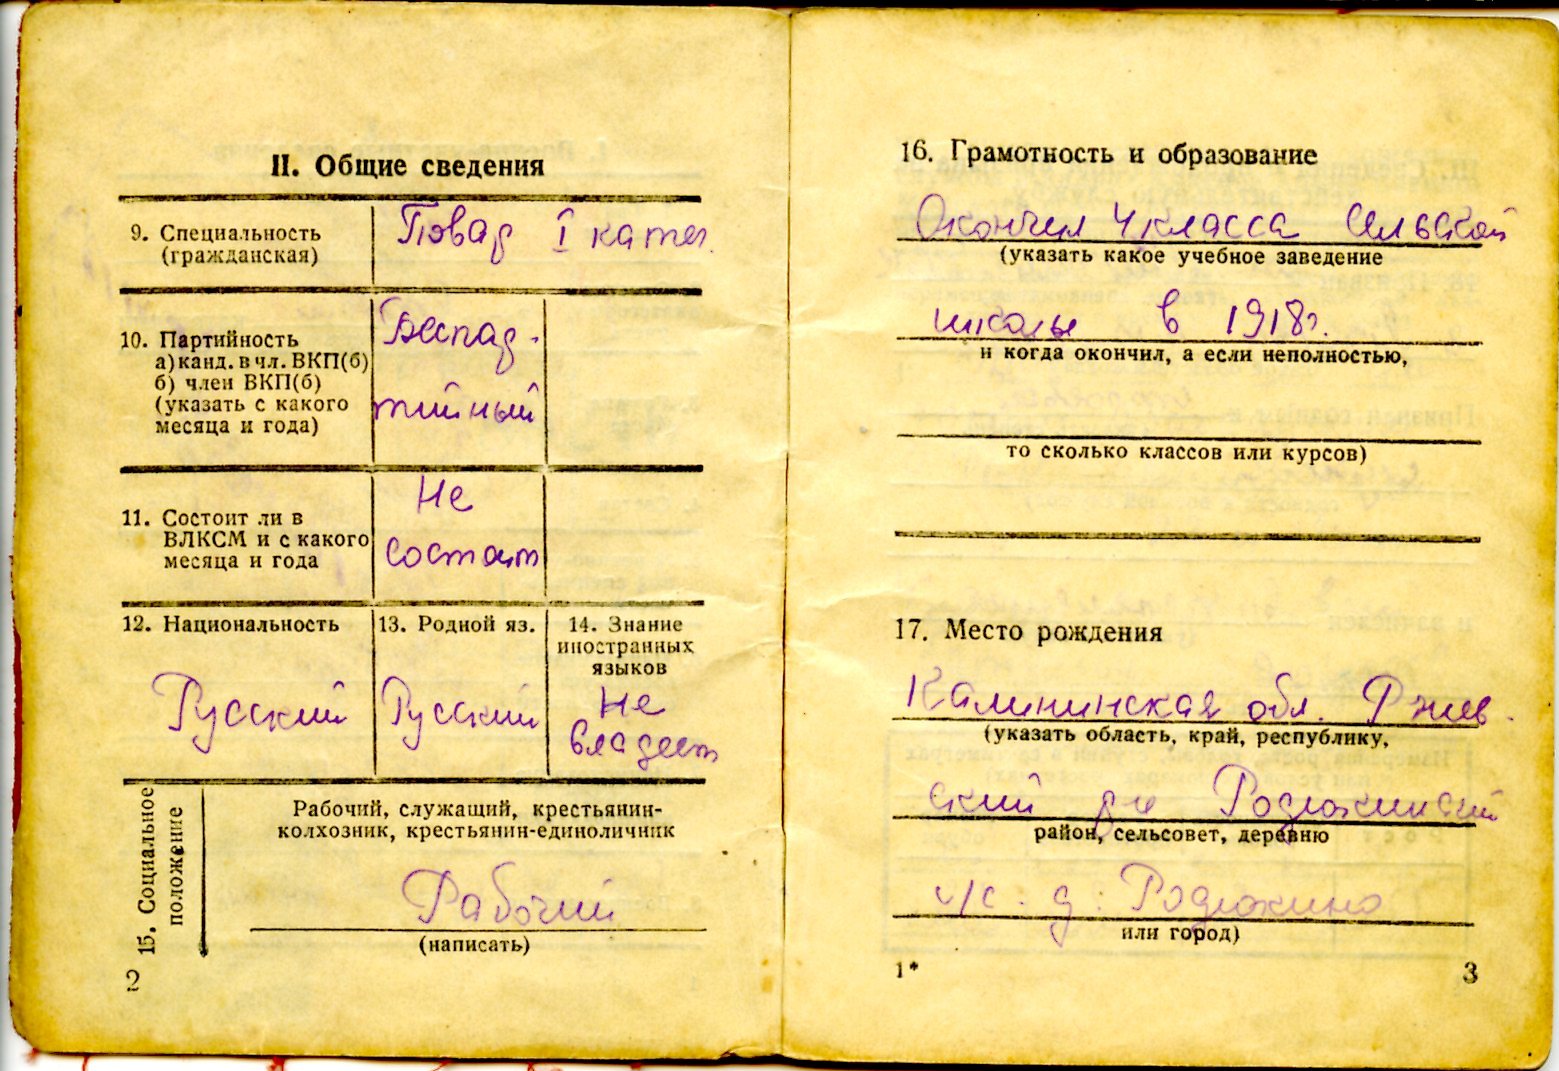 II. Общие сведения
9. Специальность
(гражданская)
Повар I катег.
10. Партийность
а) канд. в чл. ВКП(б)
б) член ВКП(б)
(указать с какого
месяца и года)
Беспар-
тийный
11. Состоит ли в
ВЛКСМ и с какого
месяца и года
Не
состоит
12. Национальность
Русский
13. Родной яз.
Русский
14. Знание
иностранных
языков
Не
владеет
15. Социальное
положение
Рабочий, служащий, крестьянин-
колхозник, крестьянин-единоличник
Рабочий
(написать)
2
16. Грамотность и образование
Окончил 4 класса сельской
(указать какое учебное заведение
школы в 1918г.
и когда окончил, а если неполностью,
то сколько классов или курсов)
17. Место рождения
Калининская обл. Ржев-
(указать область, край, республику,
ский р-н
район, сельсовет, деревню
с/с. д.
или город)
1*
3